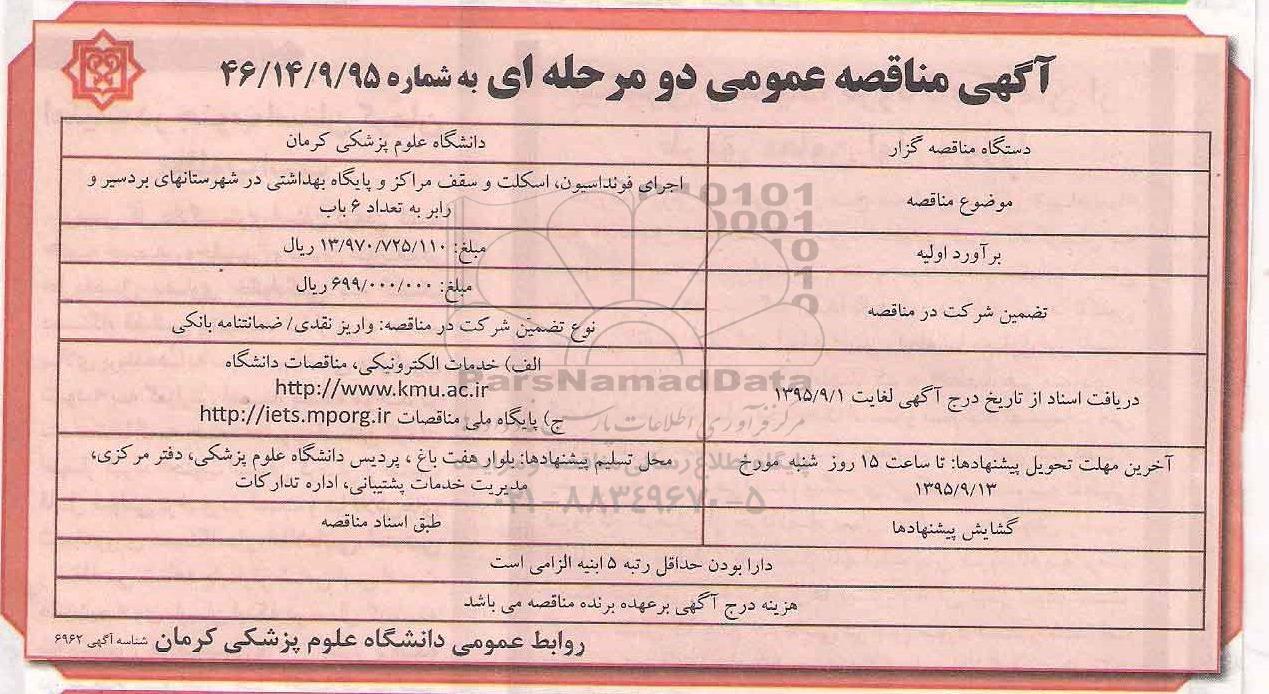 آگهی مناقصه عمومی دو مرحله ای به شماره ۴۶/۱۴/۹/۹۵
دستگاه مناقصه گزار
دانشگاه علوم پزشکی کرمان
موضوع مناقصه
اجرای فونداسیون، اسکلت و سقف مراکز و پایگاه بهداشتی در شهرستانهای بردسیر و
رابر به تعداد ۶ باب
برآورد اولیه
مبلغ: ۱۳/۹۷۰/۷۲۵/۱۱۰ ریال
تضمین شرکت در مناقصه
مبلغ: ۶۹۹/۰۰۰/۰۰۰ ریال
نوع تضمین شرکت در مناقصه: واریز نقدی/ ضمانتنامه بانکی
دریافت اسناد از تاریخ درج آگهی لغایت ۱۳۹۵/۹/۱
الف) خدمات الکترونیکی، مناقصات دانشگاه
http://www.kmu.ac.ir
ج) پایگاه ملی مناقصات http://iets.mporg.ir
آخرین مهلت تحویل پیشنهادها: تا ساعت ۱۵ روز شنبه مورخ
۱۳۹۵/۹/۱۳
محل تسلیم پیشنهادها: بلوار هفت باغ ، پردیس دانشگاه علوم پزشکی، دفتر مرکزی،
مدیریت خدمات پشتیبانی، اداره تدارکات
گشایش پیشنهادها
طبق اسناد مناقصه
دارا بودن حداقل رتبه ۵ ابنیه الزامی است
هزینه درج آگهی برعهده برنده مناقصه می باشد
روابط عمومی دانشگاه علوم پزشکی کرمان شناسه آگهی ۶۹۶۲
ParsNamadData
مرکز فرآوری اطلاعات پارس نماد داده ها
۰۲۱-۸۸۳۴۹۶۷۰-۵